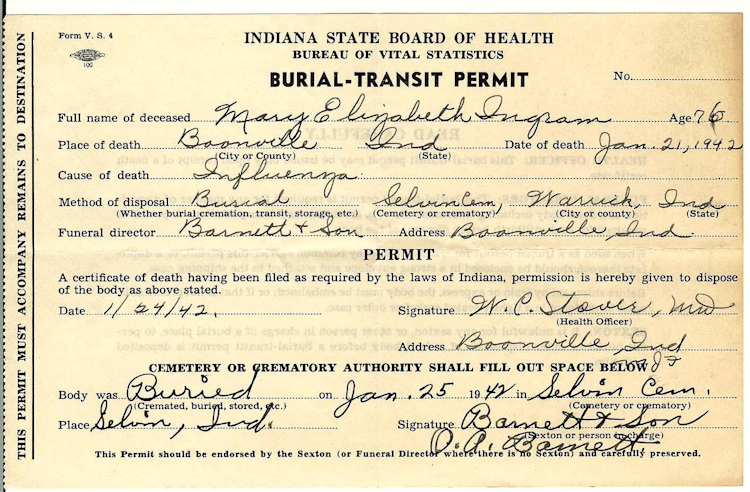 THIS PERMIT MUST ACCOMPANY REMAINS TO DESTINATION
Form V. S. 4
100
INDIANA STATE BOARD OF HEALTH
BUREAU OF VITAL STATISTICS
BURIAL-TRANSIT PERMIT
No.
Full name of deceased Mary Elizabeth Ingram Age 76
Place of death Boonville Ind Date of death Jan. 21, 1942
(City or County) (State)
Cause of death Influenza
Method of disposal Burial Selvin Cem, Warrick, Ind
(Whether burial cremation, transit, storage, etc.) (Cemetery or crematory) (City or county) (State)
Funeral director Barnett & Son Address Boonville, Ind.
PERMIT
A certificate of death having been filed as required by the laws of Indiana, permission is hereby given to dispose
of the body as above stated.
Date 1/24/42. Signature W. C. Stover, MD
(Health Officer)
Address Boonville, Ind
CEMETERY OR CREMATORY AUTHORITY SHALL FILL OUT SPACE BELOW
Body was Buried on Jan. 25 1942 in Selvin Cem.
(Cremated, buried, stored, etc.) (Cemetery or crematory)
Place Selvin, Ind. Signature Barnett & Son
(Sexton or person in charge)
O. A. Barnett
This Permit should be endorsed by the Sexton (or Funeral Director where there is no Sexton) and carefully preserved.